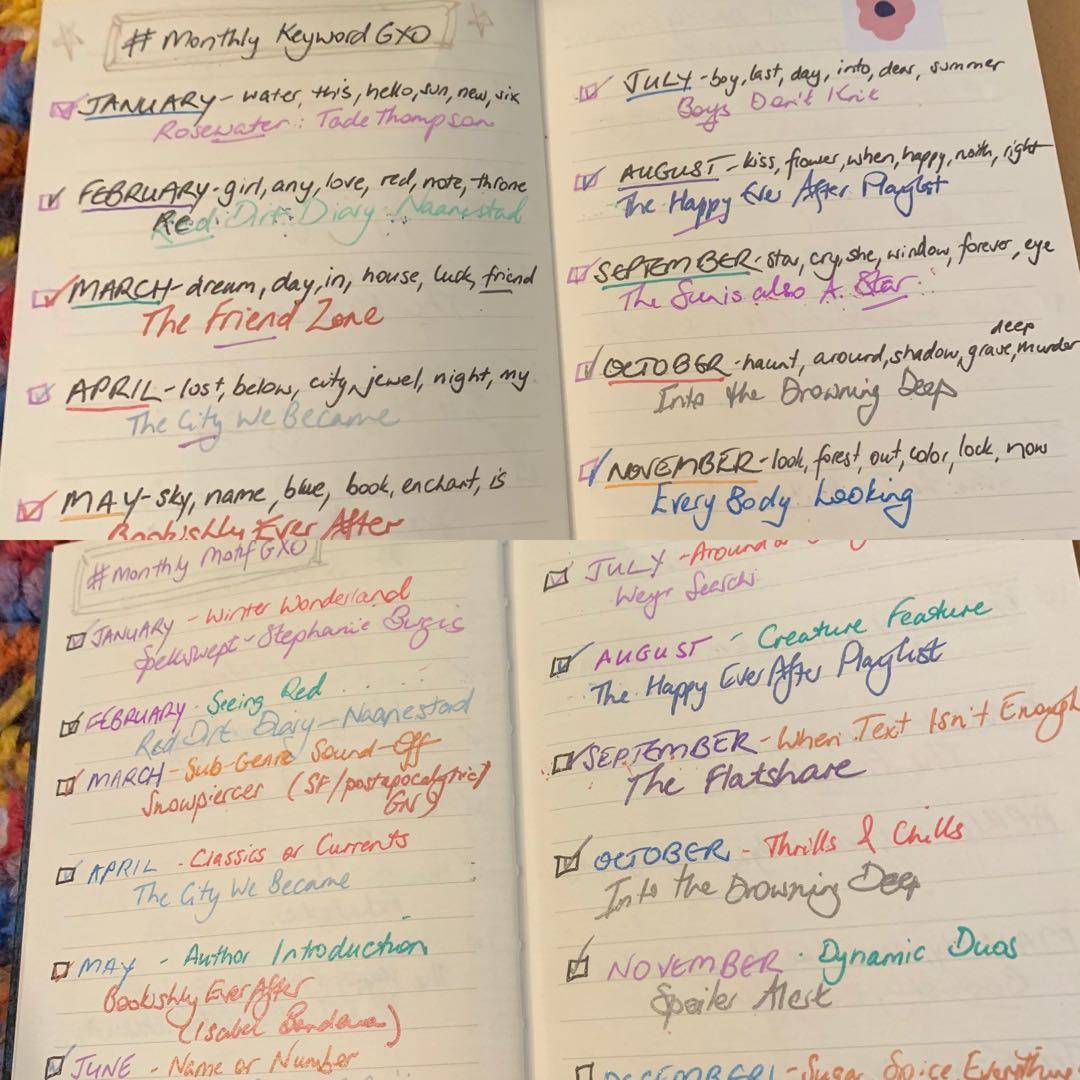 # Monthly Keyword GXO
JANUARY - water, this, hello, sun, new, six
Rosewater : Tade Thompson
FEBRUARY - girl, any, love, red, note, throne
Red Dirt Diary Naanestad
MARCH - dream, day, in, house, luck, friend
The Friend Zone
APRIL - lost, below, city, jewel, night, my
The City We Became
MAY - sky, name, blue, book, enchant, is
Bookishly Ever After
JULY - boy, last, day, into, dear, summer
Boys Don't Knit
AUGUST - kiss, flower, when, happy, north, right
The Happy Ever After Playlist
SEPTEMBER - star, cry, she, window, forever, eye
The Sun is also A Star
deep
OCTOBER - haunt, around, shadow, grave, murder
Into the Drowning Deep
NOVEMBER - look, forest, out, color, lock, now
Every Body Looking
# Monthly Motif GXO
JANUARY - Winter Wonderland
Spellswept - Stephanie Burgis
FEBRUARY - Seeing Red
Red Dirt Diary - Naanestad
MARCH - Sub-Genre Sound-Off
Snowpiercer (SF/postapocalyptic/
GN)
APRIL - Classics or Currents
The City We Became
MAY - Author Introduction
Bookishly Ever After
(Isabel Bandeira)
JUNE - Name or Number
JULY - Around
Weyr Search
AUGUST - Creature Feature
The Happy Ever After Playlist
SEPTEMBER - When Text Isn't Enough
The Flatshare
OCTOBER - Thrills & Chills
Into the Drowning Deep
NOVEMBER - Dynamic Duos
Spoiler Alert
DECEMBER - Sugar Spice Everything